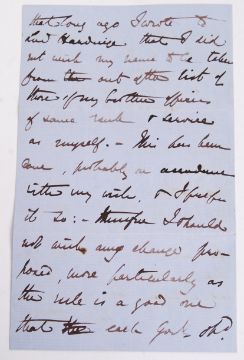 that long ago I wrote to
Lord Hardinge that I did
not wish my name to be taken
from the out of the list of
those of my brother officers
of same rank & service
as myself. - This has been
done, probably in accordance
with my wish, & I prefer
it so: - therefore I should
not wish any change pro-
posed, more particularly as
the rule is a good one
that the each Govt. shd.